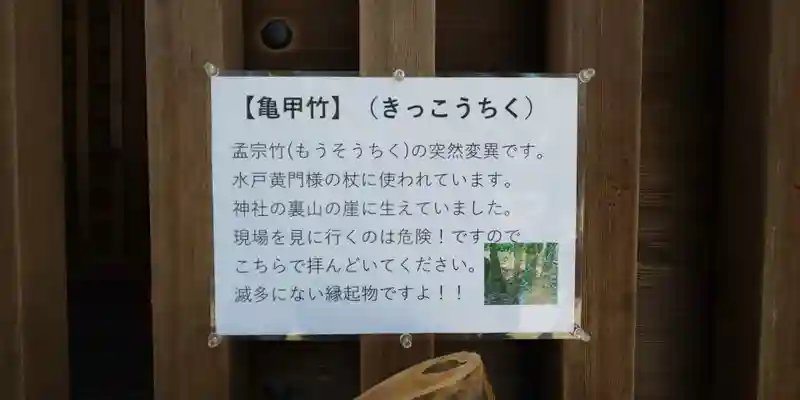 【亀甲竹】（きっこうちく）
孟宗竹(もうそうちく)の突然変異です。
水戸黄門様の杖に使われています。
神社の裏山の崖に生えていました。
現場を見に行くのは危険！ですので
こちらで拝んどいてください。
滅多にない縁起物ですよ！！